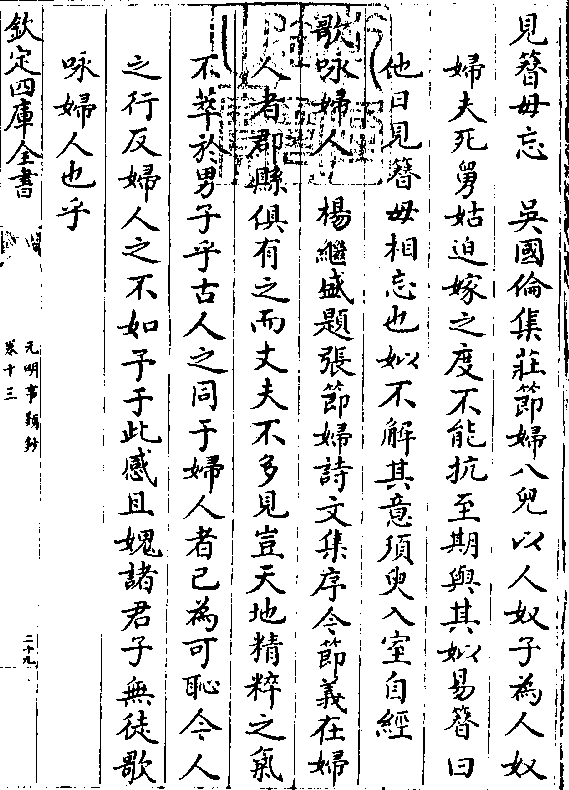 見簪毋忘　吳國倫集莊節婦八兒以人奴子為人奴
婦夫死舅姑迫嫁之度不能抗至期與其姒易簪曰
他日見簪毋相忘也姒不解其意須臾入室自經
歌咏婦人　楊繼盛題張節婦詩文集序今節義在婦
人者郡縣俱有之而丈夫不多見豈天地精粹之氣
不萃於男子乎古人之同于婦人者已為可恥今人
之行反婦人之不如予于此感且媿諸君子無徒歌
咏婦人也乎
欽定四庫全書
元明事類鈔
卷十三
二十九